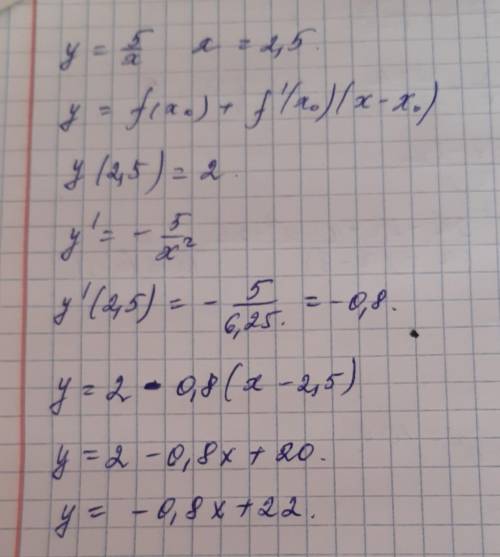 y = 5/x   x = 2,5.
y = f(x₀) + f'(x₀)(x - x₀)
y(2,5) = 2.
y' = - 5/x²
y'(2,5) = - 5/6,25. = -0,8.
y = 2 - 0,8(x - 2,5)
y = 2 - 0,8x + 20.
y = -0,8x + 22.